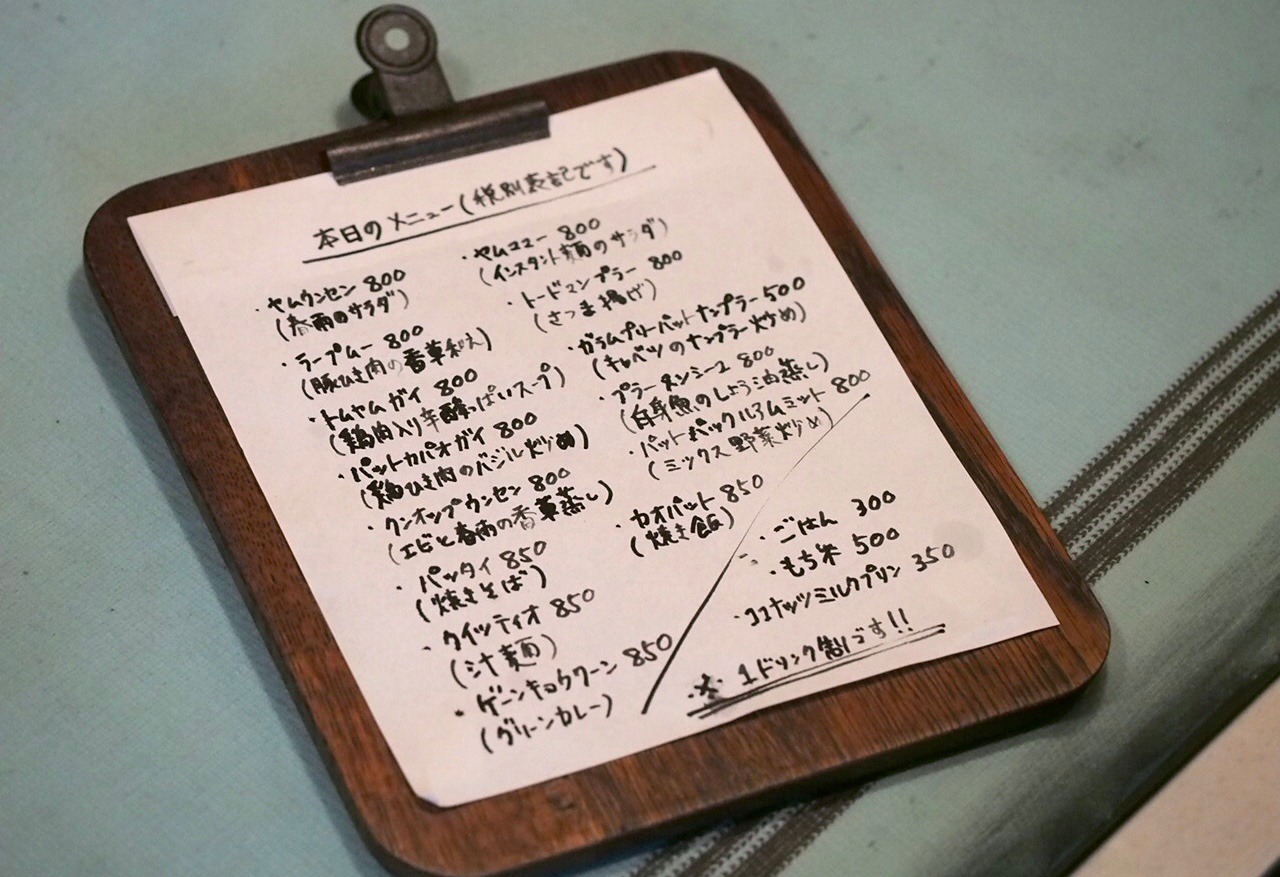 本日のメニュー(税別表記です)
・ヤムウンセン 800
(春雨のサラダ)
・ラープムー 800
(豚ひき肉の香草和え)
・トムヤムガイ 800
(鶏肉入り辛酸っぱいスープ)
・パットカパオガイ 800
(鶏ひき肉のバジル炒め)
・クンオップウンセン 800
(エビと春雨の香草蒸し)
・パッタイ 850
(焼きそば)
・クイッティオ 850
(汁麺)
・ゲーンキョウワーン 850
(グリーンカレー)
・ヤムママー 800
(インスタント麺のサラダ)
・トードマンプラー 800
(さつま揚げ)
・ガラムプリーパットナンプラー 500
(キャベツのナンプラー炒め)
・プラーヌンシーユ 800
(白身魚のしょう油蒸し)
・パットパックルアムミット 800
(ミックス野菜炒め)
・カオパット 850
(焼き飯)
・ごはん 300
・もち米 500
・ココナッツミルクプリン 350
※ 1ドリンク制です!!